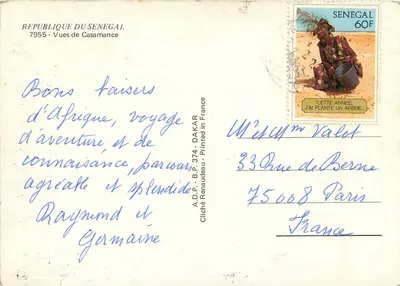 REPUBLIQUE DU SENEGAL
7955 - Vues de Casamance
Bons baisers
d'Afrique, voyage
d'aventure, et de
connaissance, parcours
agréable et splendide
Raymond et
Germaine
A.D.P. - B.P. 374 - DAKAR
Cliché Renaudeau - Printed in France
SENEGAL
60F
"CETTE ANNEE,
J'AI PLANTE UN ARBRE."
Mr et Mme Valet
33 Rue de Berne
75008 Paris
France